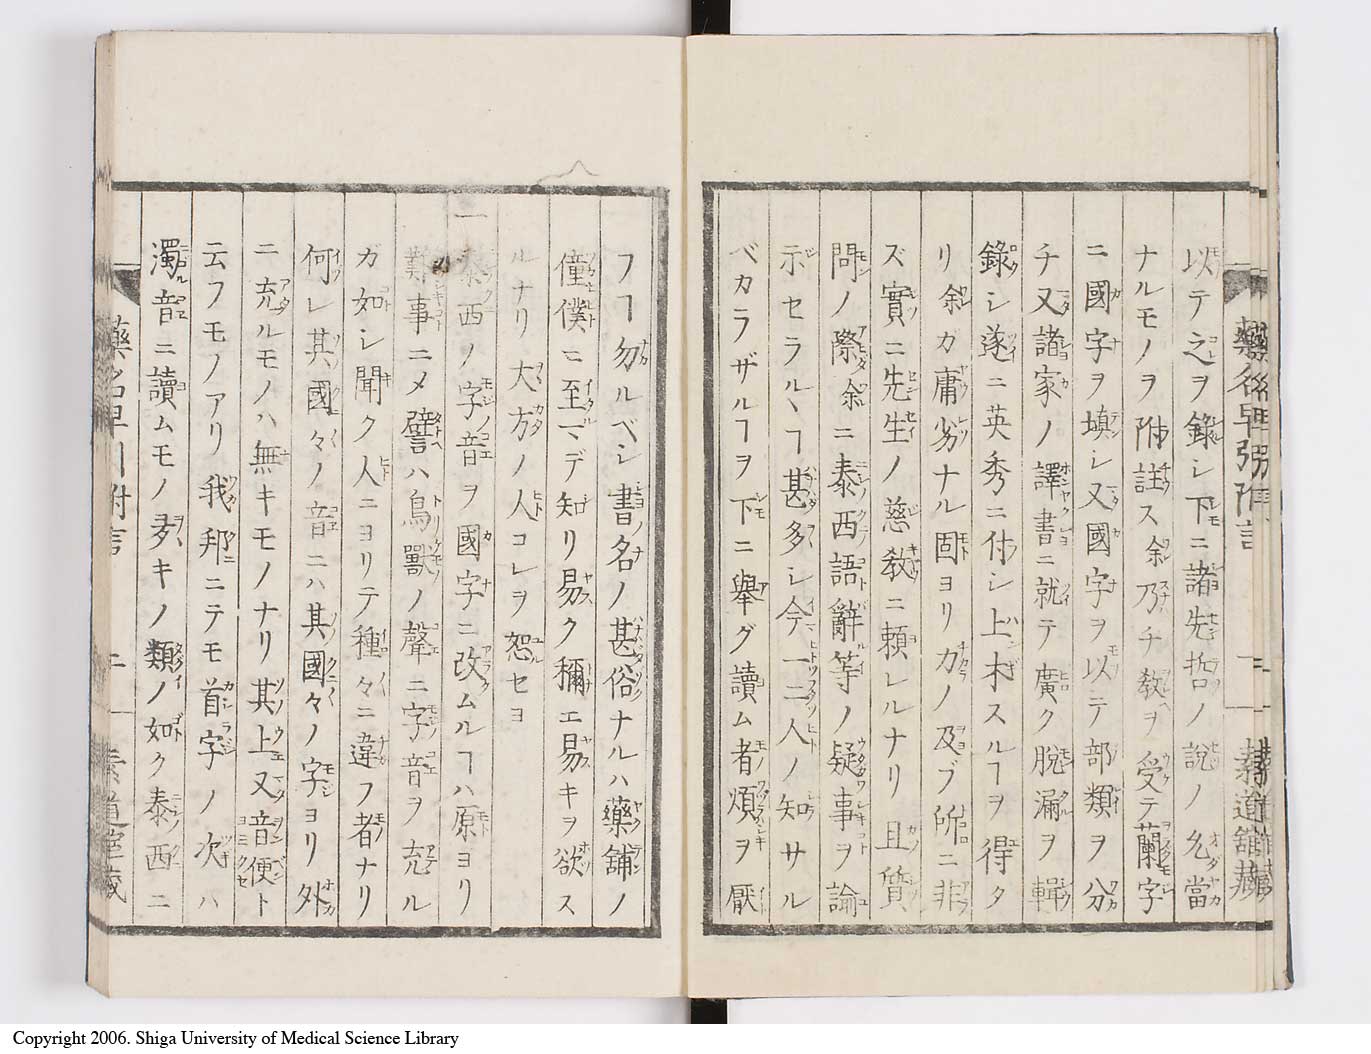 以テ之ヲ錄シ下ニ諸先哲ノ說ノ允當
ナルモノヲ附註ス余乃チ敎ヲ受テ蘭字
ニ國字ヲ塡シ又國字ヲ以テ部類ヲ分
チ又諸家ノ譯書ニ就テ廣ク脫漏ヲ輯
錄シ遂ニ英秀ニ付シ上木スルヿヲ得タ
リ余カ庸劣ナル固ヨリ力ノ及ブ所ニ非
ズ實ニ先生ノ慈敎ニ賴レルナリ且質
問ノ際余ニ泰西語辭等ノ疑事ヲ論
示セラルヽヿ甚多シ今一二人ノ知サル
ベカラザルヿヲ下ニ擧グ讀ム者煩ヲ厭
フヿ勿ルベシ書名ノ甚俗ナルハ藥舖ノ
僮僕ニ至マデ知リ易ク稱エ易キヲ欲ス
ルナリ大方ノ人コレヲ恕セヨ
一泰西ノ字音ヲ國字ニ改ムルヿハ原ヨリ
難事ニメ譬ハ鳥獸ノ聲ニ字音ヲ充ル
ガ如シ聞ク人ニヨリテ種々ニ違フ者ナリ
何レ其國々ノ音ニハ其國々ノ字ヨリ外
ニ充ルモノハ無キモノナリ其上又音便ト
云フモノアリ我邦ニテモ首字ノ次ハ
濁音ニ讀ムモノ多キノ類ノ如ク泰西ニ
藥名早引附言
Copyright 2006. Shiga University of Medical Science Library